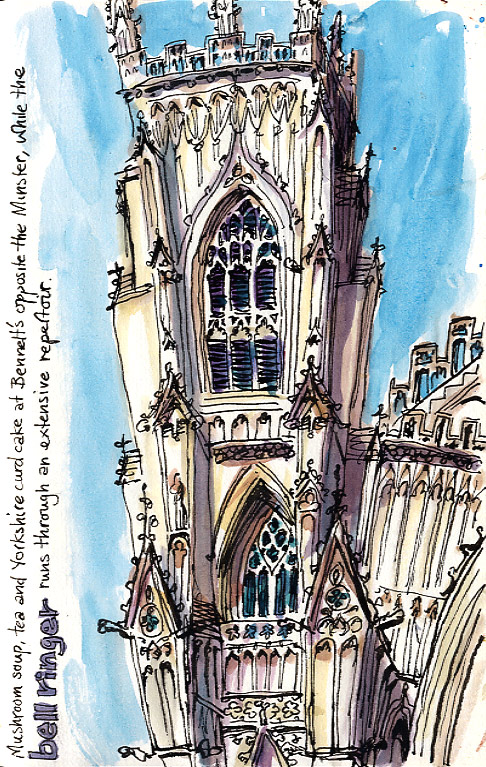 Mushroom soup, tea and Yorkshire curd cake at Bennett's opposite the Minster, while the
bell ringer runs through an extensive repetour.